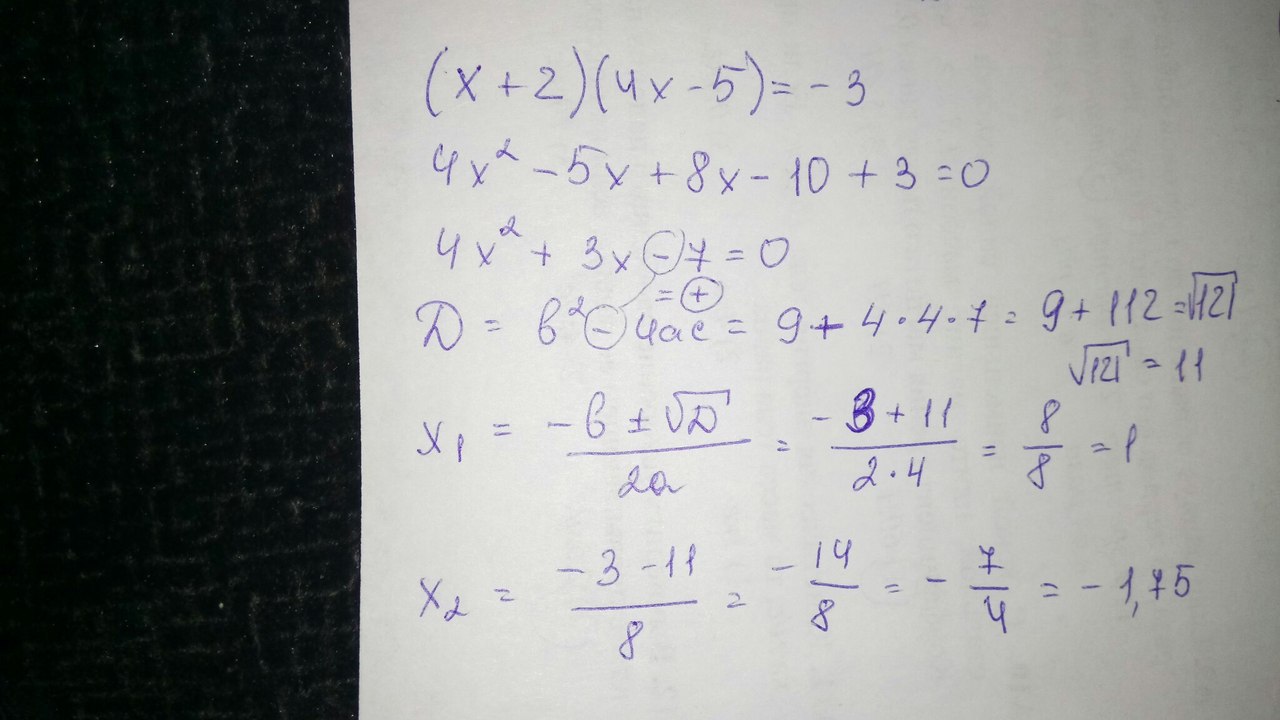 (x + 2)(4x - 5) = - 3
4x² - 5x + 8x - 10 + 3 = 0
4x² + 3x - 7 = 0
= +
D = b² - 4ac = 9 + 4 · 4 · 7 = 9 + 112 = √121
√121 = 11
x₁ = (-b ± √D)/(2a) = (-3 + 11)/(2 · 4) = 8/8 = 1
x₂ = (-3 - 11)/8 = - 14/8 = - 7/4 = - 1,75